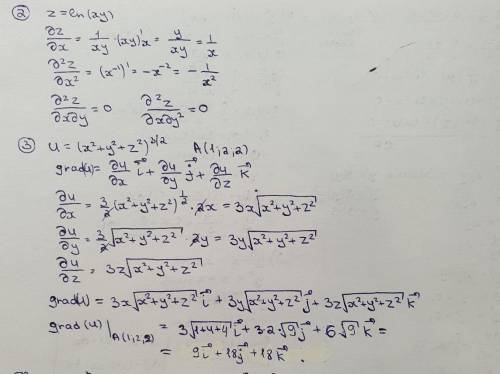 ② z = ln(xy)
∂z/∂x = 1/xy · (xy)'x = y/xy = 1/x
∂²z/∂x² = (x⁻¹)' = -x⁻² = -1/x²
∂²z/∂x∂y = 0 ∂²z/∂x∂y² = 0
③ u = (x²+y²+z²)^3/2 A(1,2,2)
grad(u) = ∂u/∂x i⃗ + ∂u/∂y j⃗ + ∂u/∂z k⃗
∂u/∂x = 3/2 (x²+y²+z²)^1/2 · 2x = 3x√(x²+y²+z²)
∂u/∂y = 3/2 √(x²+y²+z²) · 2y = 3y√(x²+y²+z²)
∂u/∂z = 3z√(x²+y²+z²)
grad(u) = 3x√(x²+y²+z²) i⃗ + 3y√(x²+y²+z²) j⃗ + 3z√(x²+y²+z²) k⃗
grad(u)|A(1,2,2) = 3√(1+4+4) i⃗ + 3·2√9 j⃗ + 6√9 k⃗ =
= 9i⃗ + 18j⃗ + 18k⃗ .